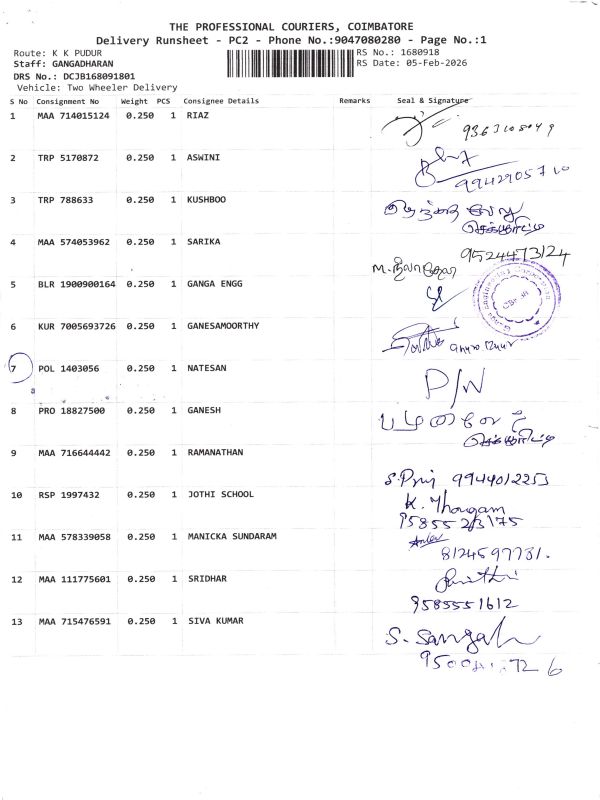 THE PROFESSIONAL COURIERS, COIMBATORE
Delivery Runsheet - PC2 - Phone No.:9047080280 - Page No.:1
Route: K K PUDUR RS No.: 1680918
Staff: GANGADHARAN RS Date: 05-Feb-2026
DRS No.: DCJB168091801
Vehicle: Two Wheeler Delivery
S No Consignment No Weight PCS Consignee Details Remarks Seal & Signature
1 MAA 714015124 0.250 1 RIAZ
9363108049
2 TRP 5170872 0.250 1 ASWINI
9942905710
3 TRP 788633 0.250 1 KUSHBOO
செக்யூரிட்டி
4 MAA 574053962 0.250 1 SARIKA
9524473124
5 BLR 1900900164 0.250 1 GANGA ENGG
6 KUR 7005693726 0.250 1 GANESAMOORTHY
7 POL 1403056 0.250 1 NATESAN
P/W
8 PRO 18827500 0.250 1 GANESH
செக்யூரிட்டி
9 MAA 716644442 0.250 1 RAMANATHAN
S.Priy 9944012253
10 RSP 1997432 0.250 1 JOTHI SCHOOL
K. Thangam
9585523175
11 MAA 578339058 0.250 1 MANICKA SUNDARAM
8124597731.
12 MAA 111775601 0.250 1 SRIDHAR
9585551612
13 MAA 715476591 0.250 1 SIVA KUMAR
S. Sangah